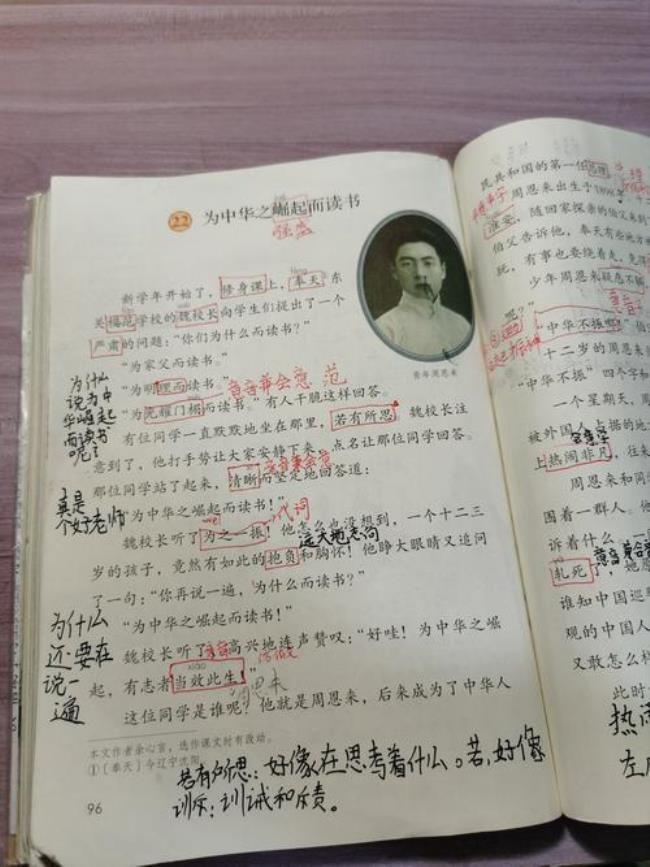 22 为中华之崛起而读书
强盛
新学年开始了，修身课上，奉天东
关模范学校的魏校长向学生们提出了一个
严肃的问题：“你们为什么而读书？”
“为家父而读书。”
“为明理而读书。”
形音兼会意 范
“为光耀门楣而读书。”有人干脆这样回答。
有位同学一直默默地坐在那里，若有所思。魏校长注
意到了，他打手势让大家安静下来，点名让那位同学回答。
那位同学站了起来，清晰而坚定地回答道：
“为中华之崛起而读书！”
代词
魏校长听了为之一振！他怎么也没想到，一个十二三
远大地志向
岁的孩子，竟然有如此的抱负和胸怀！他睁大眼睛又追问
了一句：“你再说一遍，为什么而读书？”
“为中华之崛起而读书！”
魏校长听了高兴地连声赞叹：“好哇！为中华之崛
起，有志者当效此生！”
周恩来
这位同学是谁呢？他就是周恩来，后来成为了中华人
青年周恩来
为什么
说为中
华崛起
而读书
呢？
真是
个好老师
为什么
还要在
说一
遍
本文作者余心言，选作课文时有改动。
①〔奉天〕今辽宁沈阳。
若有所思：好像在思考着什么。若，好像
训斥：训诫和斥责。
96
民共和国的第一任总理
周恩来出生于1898年
淮安，随回家探亲的伯父来到
伯父告诉他，奉天有些地方
玩，有事也要绕着走，免得
少年周恩来疑惑不解
呢？”
“中华不振啊！”伯
十二岁的周恩来
“中华不振”四个字和
一个星期天，周
被外国人占据的地
上热闹非凡，往来
周恩来和同
围着一群人。他
诉着什么，一
轧死了，她原
谁知中国巡
观的中国人
又敢怎么样
此时
热闹
左